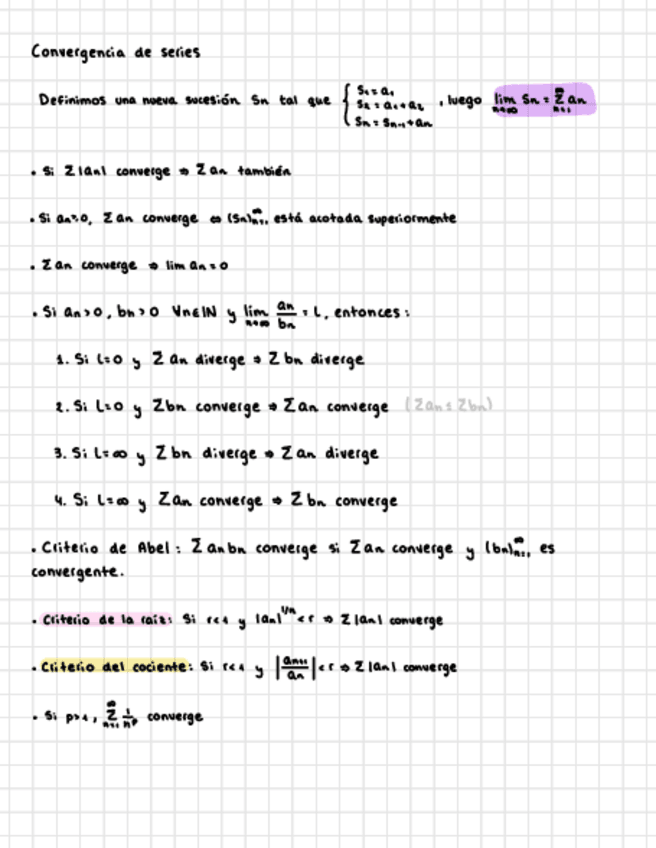 Convergencia de series
Definimos una nueva sucesión Sn tal que { S₁ = a₁ S₂ = a₁ + a₂ Sn = Sn-1 + an , luego lim n→∞ Sn = ∑ n=1 ∞ an
• Si Σ|an| converge ⇒ Σan también
• Si an≥0, Σan converge ⇔ (Sn)∞n=1 está acotada superiormente
• Σan converge ⇒ lim an = 0
• Si an>0, bn>0 ∀n∈ℕ y lim n→∞ an/bn = L, entonces:
1. Si L=0 y Σan diverge ⇒ Σbn diverge
2. Si L=0 y Σbn converge ⇒ Σan converge (Σan ≤ Σbn)
3. Si L=∞ y Σbn diverge ⇒ Σan diverge
4. Si L=∞ y Σan converge ⇒ Σbn converge
• Criterio de Abel: Σanbn converge si Σan converge y (bn)∞n=1 es
convergente.
• Criterio de la raiz: Si r<1 y |an|^1/n < r ⇒ Σ|an| converge
• Criterio del cociente: Si r<1 y |an+1/an| < r ⇒ Σ|an| converge
• Si p>1, ∑ n=1 ∞ 1/n^p converge